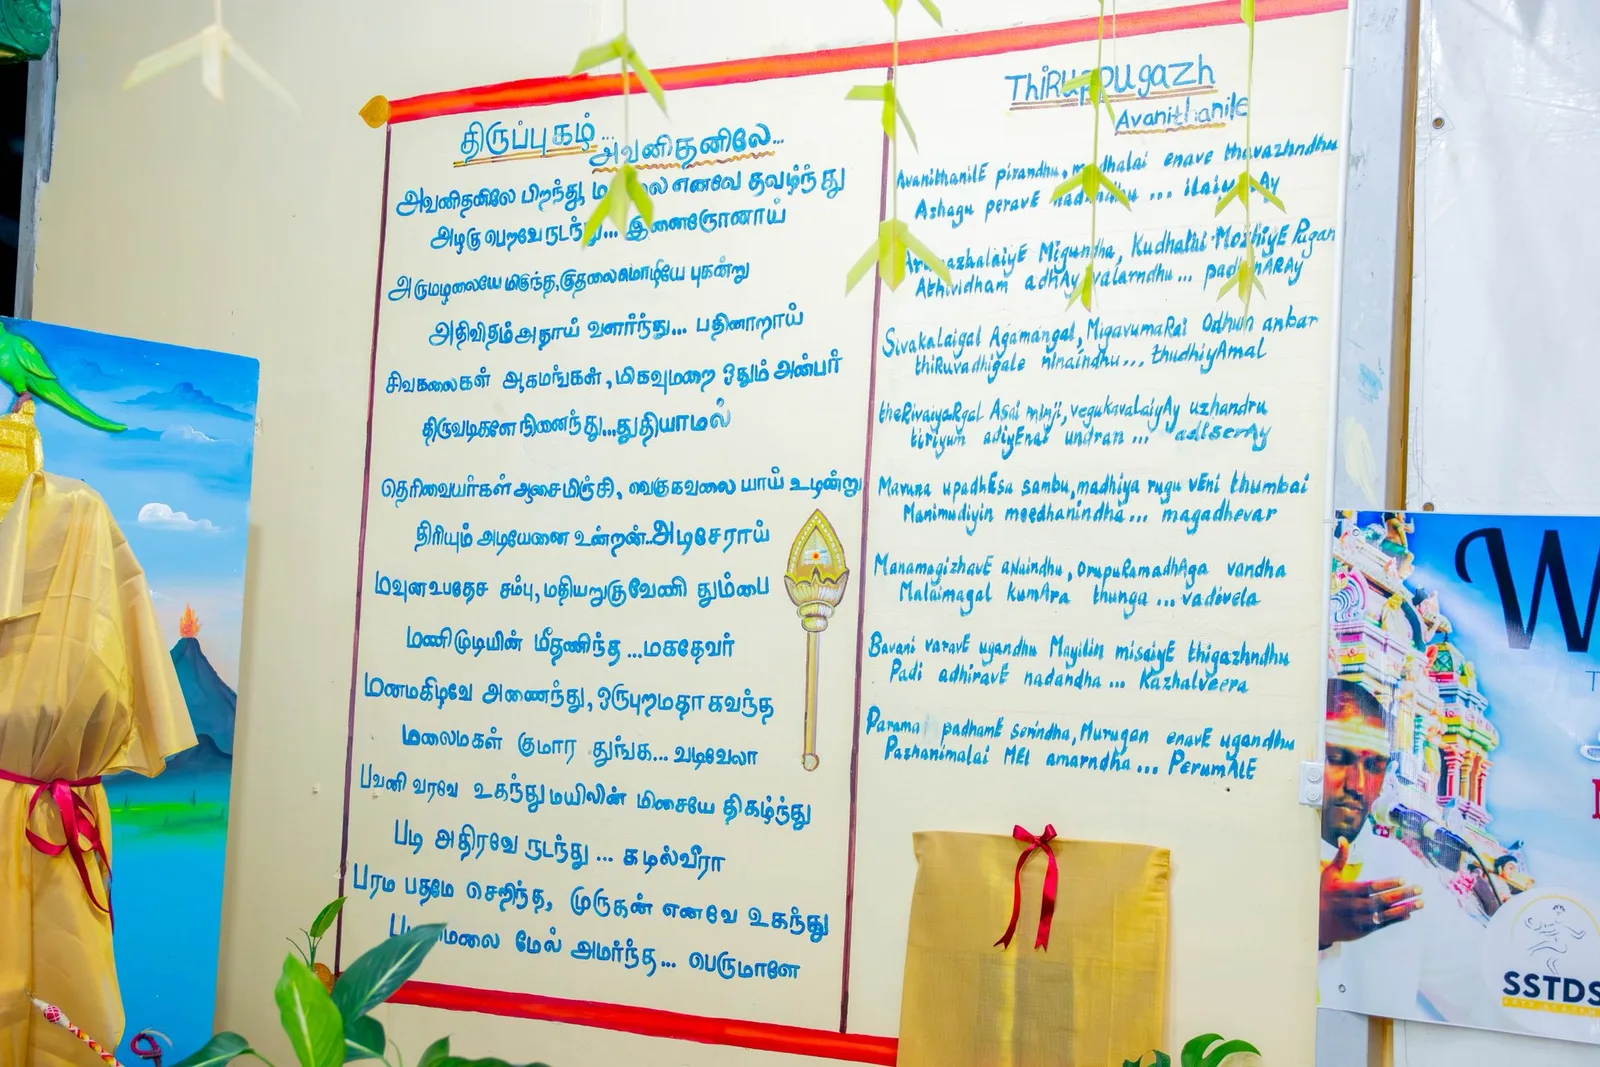 திருப்புகழ்...
அவனிதனிலே...
அவனிதனிலே பிறந்து, எனவே தவழ்ந்து
அழகு பெறவே நடந்து... இளைஞோனாய்
அருமழலையே மிகுந்த, குதலைமொழியே புகன்று
அதிவிதம் அதாய் வளர்ந்து... பதினாறாய்
சிவகலைகள் ஆகமங்கள், மிகவுமறை ஓதும் அன்பர்
திருவடிகளே நினைந்து...துதியாமல்
தெரிவையர்கள் ஆசைமிஞ்சி, வெகுகவலை யாய் உழன்று
திரியும் அடியேனை உன்றன்..அடிசேராய்
மவுன உபதேச சம்பு, மதியறுகு வேணி தும்பை
மணிமுடியின் மீதணிந்த ...மகதேவர்
மனமகிழவே அணைந்து, ஒருபுறமதாகவந்த
மலைமகள் குமார துங்க... வடிவேலா
பவனி வரவே உகந்து மயிலின் மிசையே திகழ்ந்து
படி அதிரவே நடந்து ... கழல்வீரா
பரம பதமே செறிந்த, முருகன் எனவே உகந்து
மேல் அமர்ந்த... பெருமாளே
Thiruppugazh
Avanithanile
AvanithanilE pirandhu, madhalai enave thavazhndhu
Azhagu peravE nadandhu ...
ArumazhalaiyE Migundha, Kudhalai MozhiyE Pugan
Athividham adhAy valarndhu... padhinARAy
Sivakalaigal Agamangal, MigavumaRai Odhum anbar
thiRuvadhigale ninaindhu... thudhiyAmal
theRivaiyaRgal Asai minji, vegukavalaiyAy uzhandru
tiriyum adiyEnai undran ... adiserAy
Mavuna upadhEsa sambu, madhiya rugu vEni thumbai
Manimudiyin meedhanindha... magadhevar
ManamagizhavE aNaindhu, orupuRamadhAga vandha
Malaimagal kumAra thunga ... vadivela
Bavani varavE ugandhu Mayilin misaiyE thigazhndhu
Padi adhiravE nadandha ... Kazhalveera
Parama padhamE serindha, Murugan enavE ugandhu
Pazhanimalai MEl amarndha... PerumALE
W
SSTDS